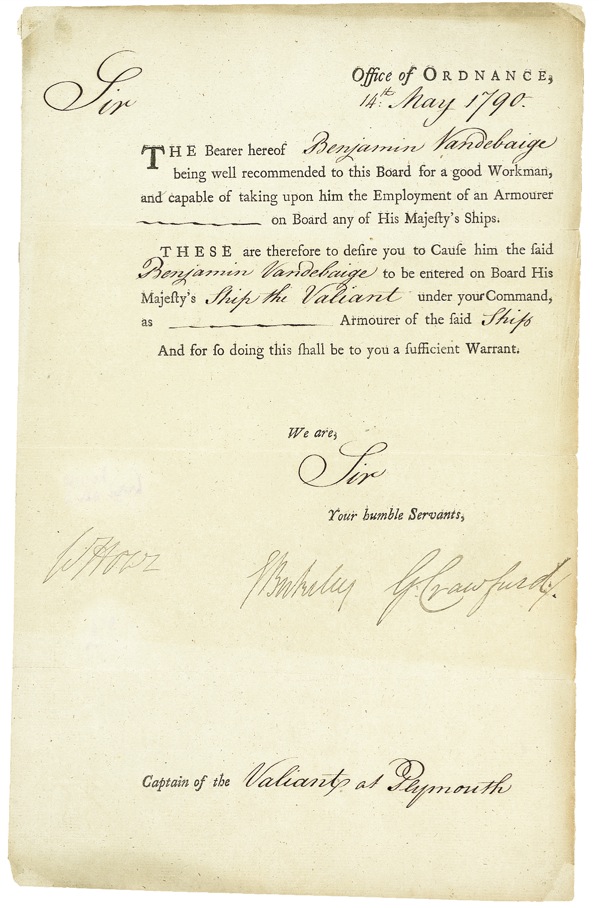 Office of ORDNANCE,
Sir
14.th May 1790.
THE Bearer hereof Benjamin Vandebaige
being well recommended to this Board for a good Workman,
and capable of taking upon him the Employment of an Armourer
on Board any of His Majeſty's Ships.
THESE are therefore to deſire you to Cauſe him the ſaid
Benjamin Vandebaige to be entered on Board His
Majeſty's Ship the Valiant under your Command,
as Armourer of the ſaid Ship
And for ſo doing this ſhall be to you a ſufficient Warrant.
We are,
Sir
Your humble Servants,
W Howe J Berkeley G. Crawfurd.
Captain of the Valiant at Plymouth